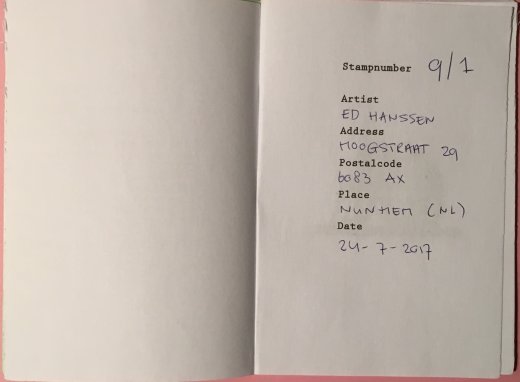 Stampnumber 9/1
Artist
ED HANSSEN
Address
HOOGSTRAAT 29
Postalcode
6083 AX
Place
NUNHEM (NL)
Date
24-7-2017